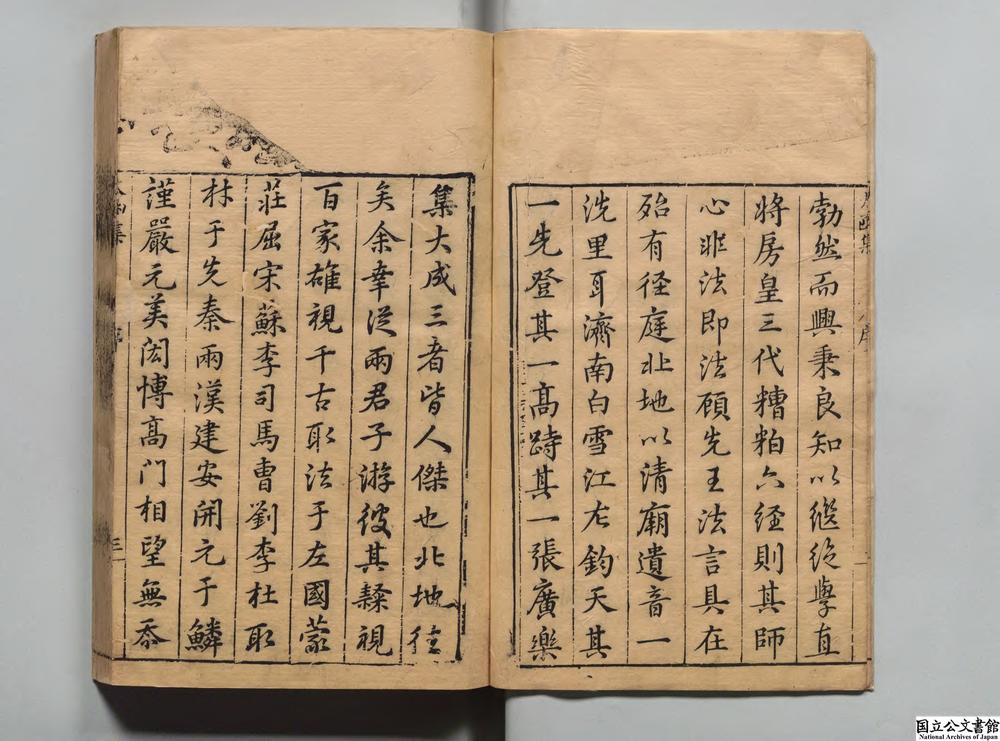 勃然而興秉良知以繼絕學直
將房皇三代糟粕六經則其師
心非法即法顧先王法言具在
殆有径庭北地以清廟遺音一
洗里耳濟南白雪江左鈞天其
一先登其一高跱其一張廣樂
集大成三者皆人傑也北地往
矣余幸從兩君子游彼其鞣視
百家雄視千古取法于左國蒙
莊屈宋蘇李司馬曹劉李杜取
材于先秦兩漢建安開元于鱗
謹嚴元美閎博高門相望無忝
国立公文書館
National Archives of Japan